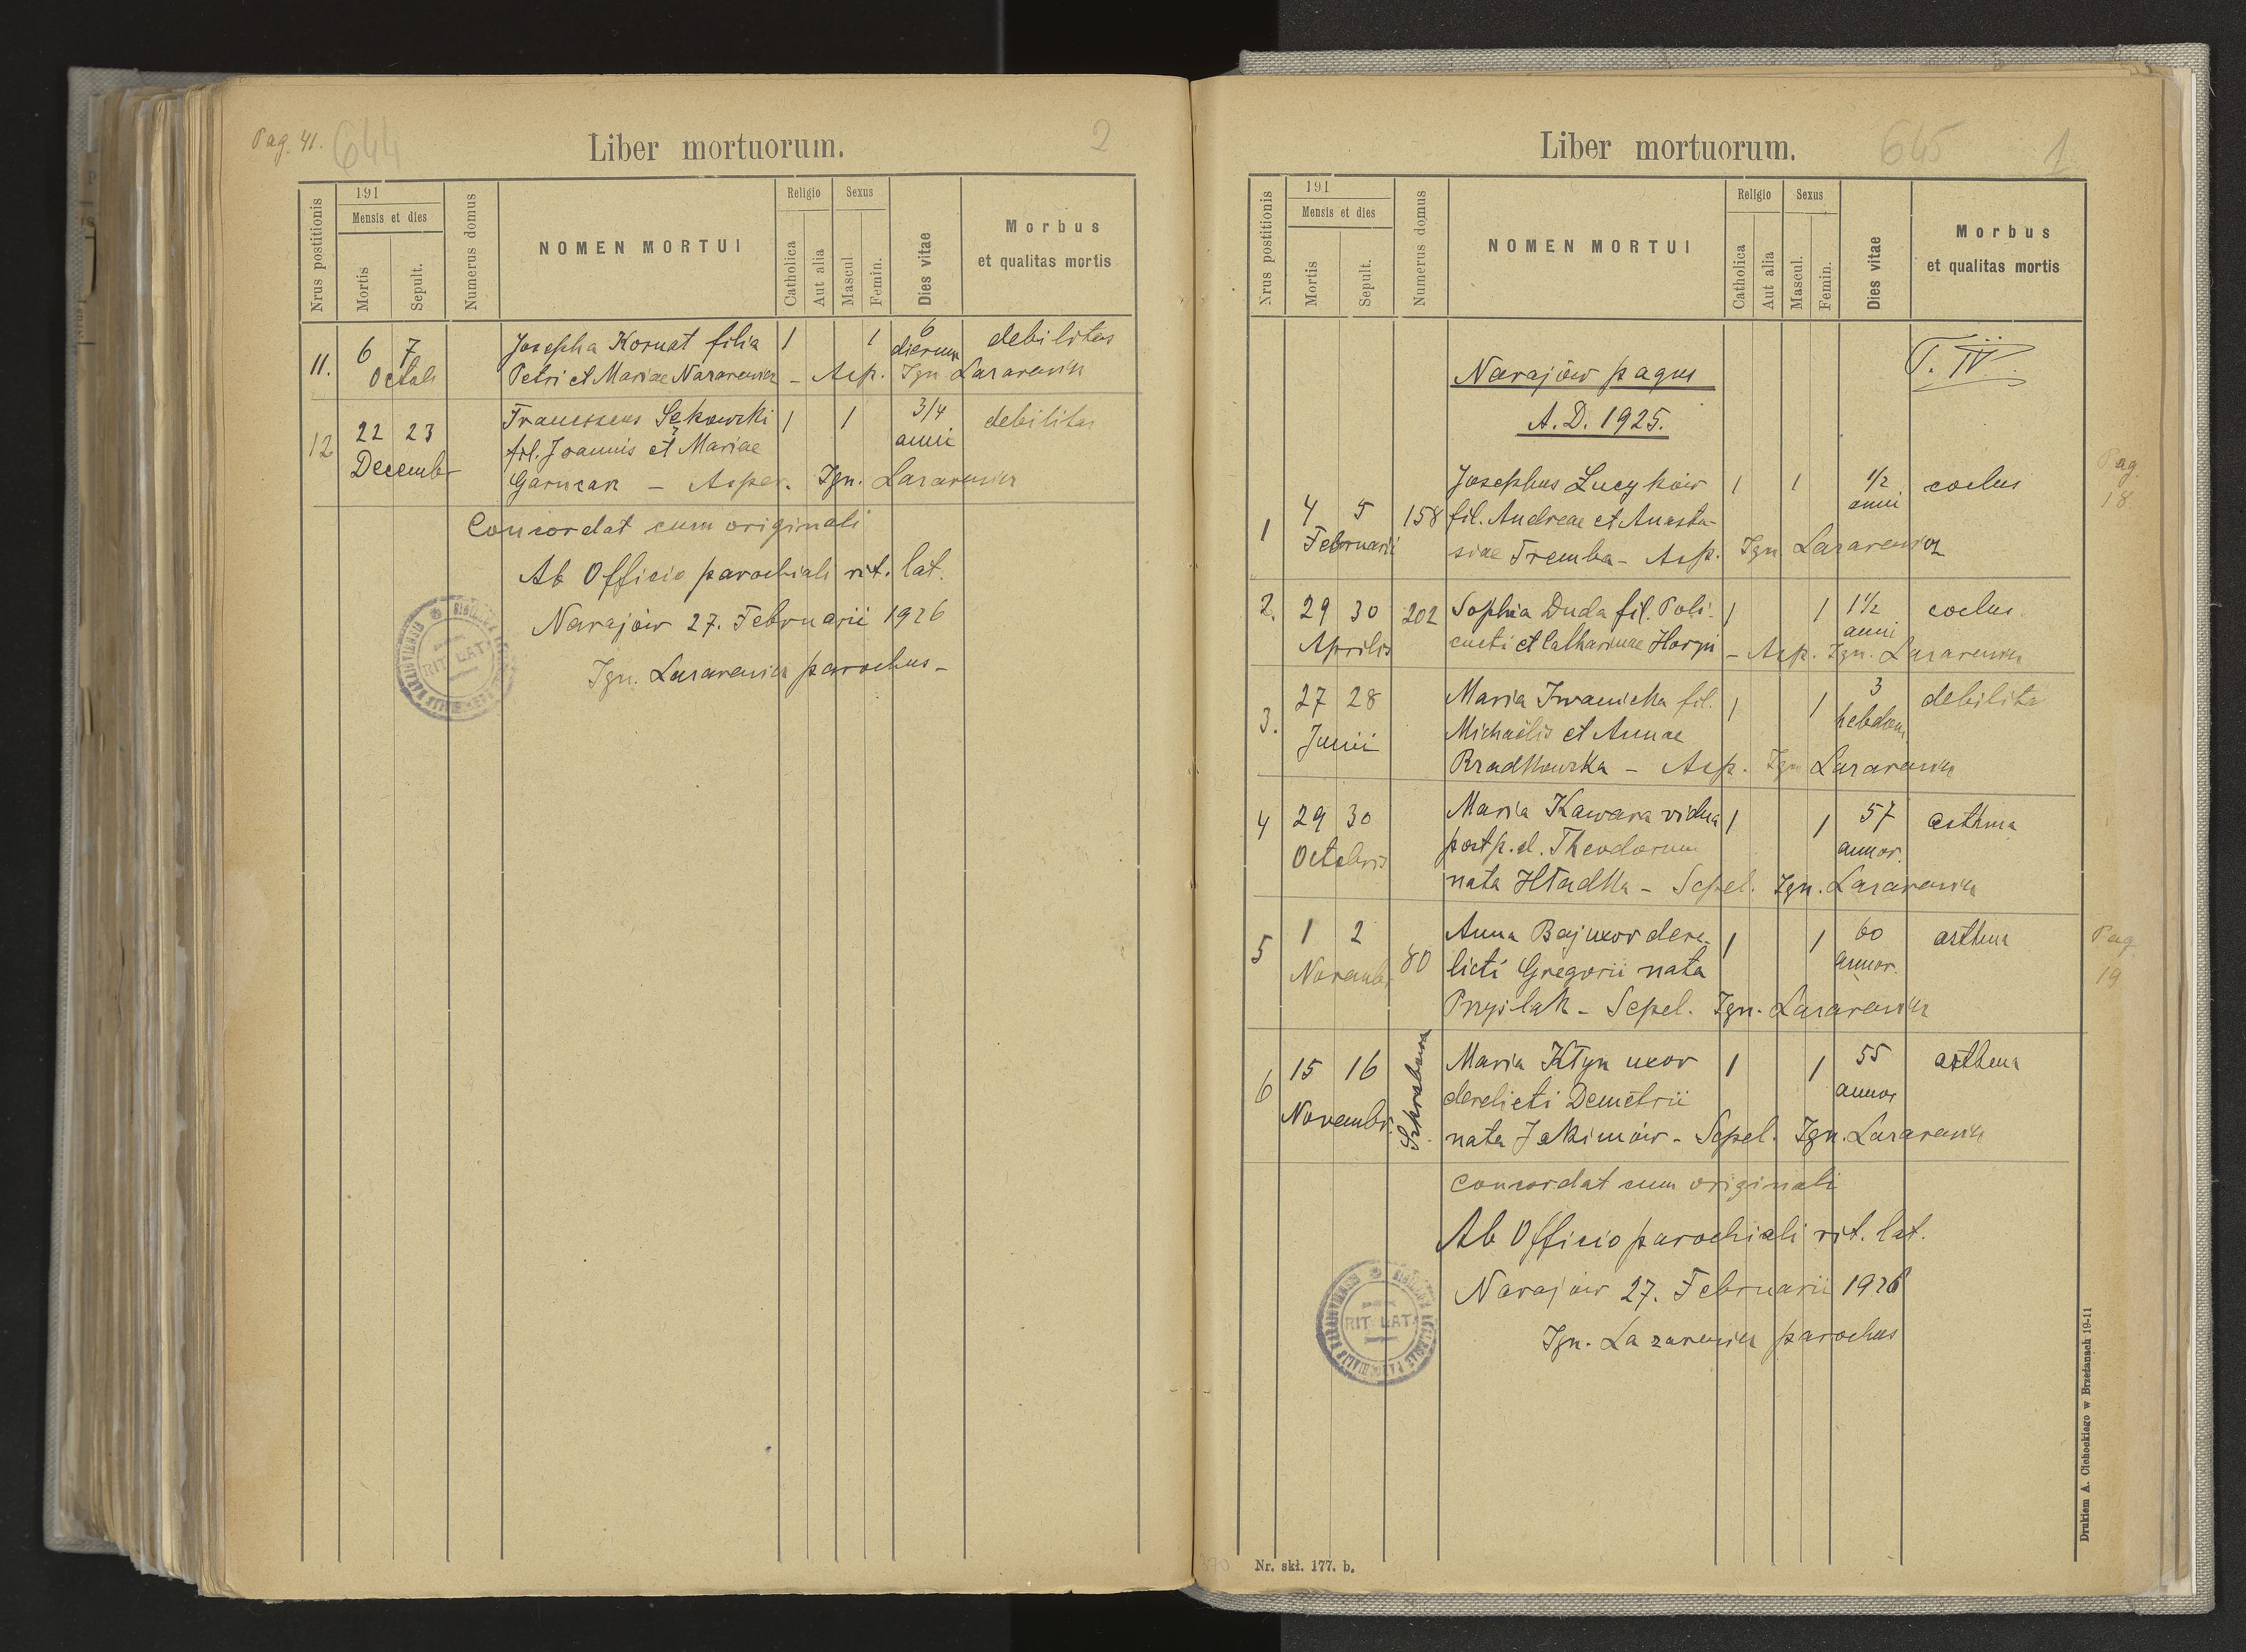 Pag. 41.
644
Liber mortuorum.
2
Nrus postitionis
191
Mensis et dies
Mortis
Sepult.
Numerus domus
NOMEN MORTUI
Religio
Catholica
Aut alia
Sexus
Mascul.
Femin.
Dies vitae
Morbus
et qualitas mortis
11. 6 7 Josepha Kornat filia 1 1 6 debilitas
Octob Petri et Mariae Nazarewicz - Asp. dierum Ign Lazarewicz
12 22 23 Franciscus Sękowski 1 1 3/4 debilitas
Decembr fil. Joannis et Mariae anni
Garncarz - Asper. Ign. Lazarewicz
Concordat cum originali
Ab Officio parochiali rit. lat.
Narajów 27. Februarii 1926
Ign. Lazarewicz parochus -
RIT. LAT.
Liber mortuorum.
645
1
Nrus postitionis
191
Mensis et dies
Mortis
Sepult.
Numerus domus
NOMEN MORTUI
Religio
Catholica
Aut alia
Sexus
Mascul.
Femin.
Dies vitae
Morbus
et qualitas mortis
T. IV.
Narajów pagus
A. D. 1925.
Pag.
18
1 4 5 158 Josephus Łucyków 1 1 1/2 coclus
Februarii fil. Andreae et Anasta- anni
siae Tremba - Asp. Ign. Lazarewicz
2. 29 30 202 Sophia Duda fil. Poli- 1 1 1 1/2 coclus
Aprilis et Catharinae - Asp. anni Ign. Lazarewicz
3. 27 28 Maria Iwanicka fil. 1 1 3 debilitas
Junii Michaëlis et Annae hebdom.
Rradkowska - Asp. Ign Lazarewicz
4 29 30 Maria Kawara vidua 1 1 57 asthma
Octobris post p. d. Theodorum annor.
nata Hładka - Sepel. Ign. Lazarewicz
5 1 2 80 Anna Baj uxor dere- 1 1 60 asthma
Novembr. licti Gregorii nata annor.
Przysłak - Sepel. Ign. Lazarewicz
Pag.
19
6 15 16 Maria Kłyn uxor 1 1 55 asthma
Novembr. derelicti Demetrii annor
nata Jakimów - Sepel. Ign. Lazarewicz
Concordat cum originali
Ab Officio parochiali rit. lat.
Narajów 27. Februarii 1926
Ign. Lazarewicz parochus
RIT. LAT.
Nr. skł. 177. b.
Drukiem A. Cichockiego w Brzeżanach 19-11